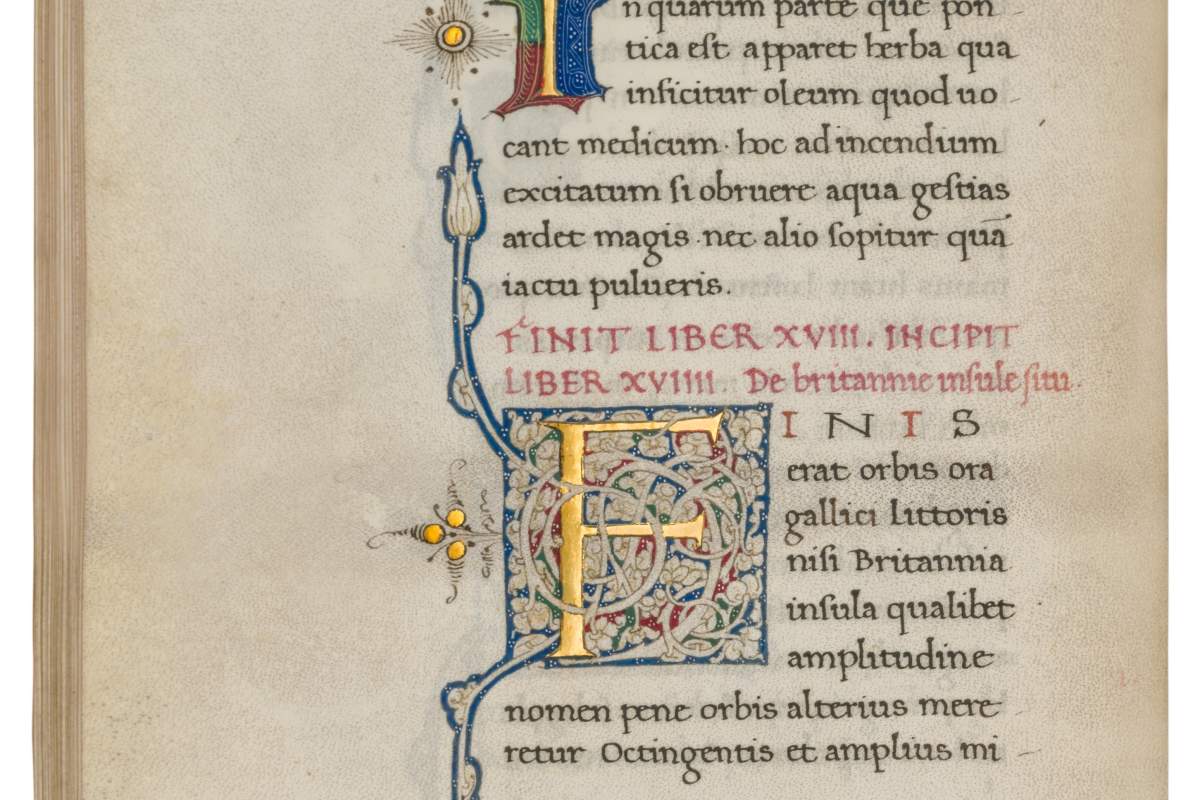 n quarum parte que pon
tica est apparet herba qua
inficitur oleum quod uo
cant medicum · hoc ad incendium
excitatum si obruere aqua gestias
ardet magis · nec alio sopitur quā
iactu pulueris.
FINIT LIBER XVIII. INCIPIT
LIBER XVIIII De britannie insule situ.
FINIS
erat orbis ora
gallici littoris
nisi Britannia
insula qualibet
amplitudine
nomen pene orbis alterius mere
retur Octingentis et amplius mi